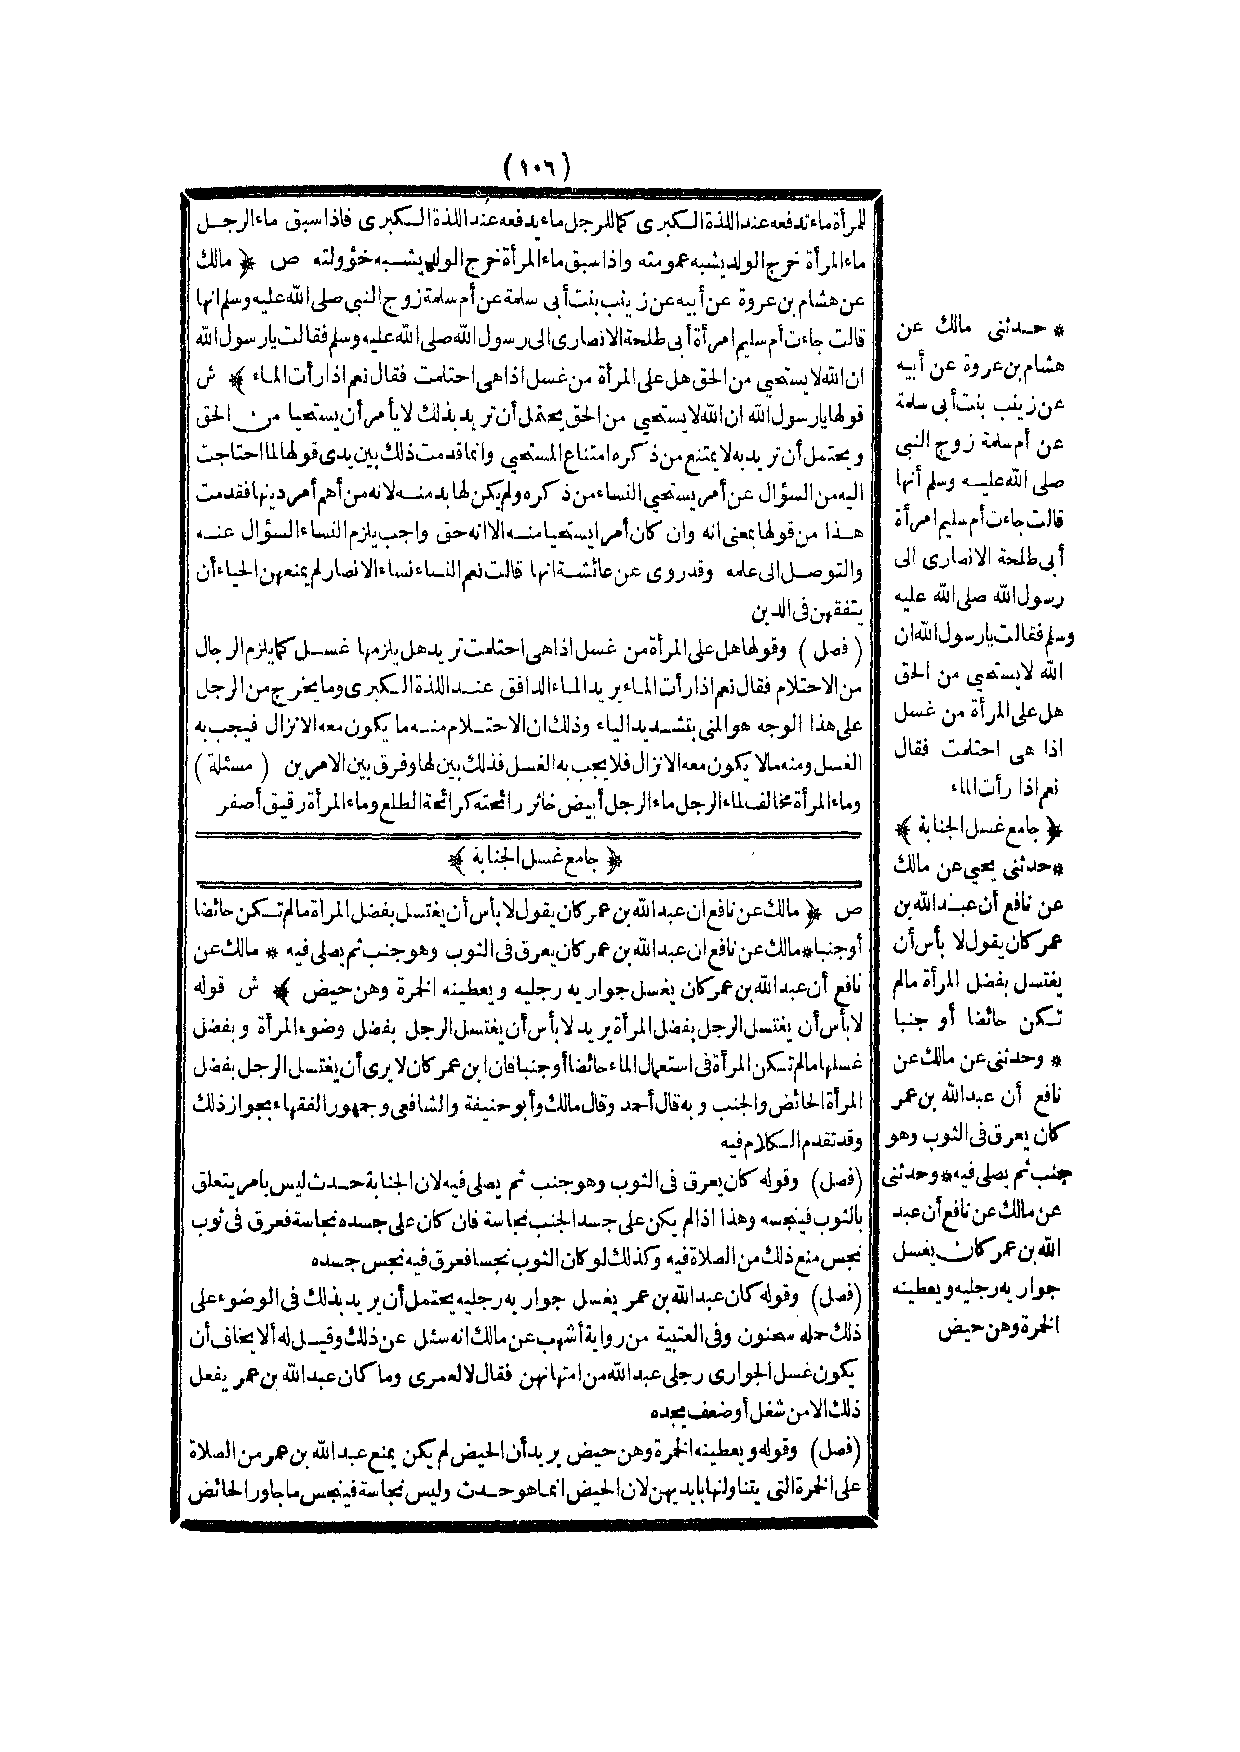 (١٠٦)
للمرأة ماء تدفعه عند اللذة الكبرى كما للرجل ماء يدفعه عند اللذة الكبرى فاذا سبق ماء الرجل
ماء المرأة خرج الولد يشبه عمومته واذا سبق ماء المرأة خرج الولد يشبه خؤولته ص ﴿ مالك
عن هشام بن عروة عن أبيه عن زينب بنت أبى سلمة عن أم سلمة زوج النبي صلى الله عليه وسلم انها
قالت جاءت أم سليم امرأة أبى طلحة الانصارى الى رسول الله صلى الله عليه وسلم فقالت يارسول الله
ان الله لا يستحيي من الحق هل على المرأة من غسل اذا هى احتلمت فقال نعم اذا رأت الماء ﴾ ش
قولها يارسول الله ان الله لا يستحيي من الحق يحتمل أن تريد بذلك لا يأمر أن يستحيا من الحق
ويحتمل أن تريد به لا يمتنع من ذكره امتناع المستحيي وانما قدمت ذلك بين يدى قولها لما احتاجت
اليه من السؤال عن أمر يستحيي النساء من ذكره ولم يكن لها بد منه لانه من أهم أمر دينها فقدمت
هذا من قولها بمعنى انه وان كان أمرا يستحيا منه الا انه حق واجب يلزم النساء السؤال عنه
والتوصل الى علمه وقد روى عن عائشة انها قالت نعم النساء نساء الانصار لم يمنعهن الحياء أن
يتفقهن فى الدين
(فصل) وقولها هل على المرأة من غسل اذا هى احتلمت تريد هل يلزمها غسل كما يلزم الرجال
من الاحتلام فقال نعم اذا رأت الماء يريد الماء الدافق عند اللذة الكبرى وما يخرج من الرجل
على هذا الوجه هو المنى بتشديد الياء وذلك ان الاحتلام منه ما يكون معه الانزال فيجب به
الغسل ومنه مالا يكون معه الانزال فلا يجب به الغسل فذلك بين لها وفرق بين الامرين (مسئلة)
وماء المرأة مخالف لماء الرجل ماء الرجل أبيض خاثر رائحته كرائحة الطلع وماء المرأة رقيق أصفر
﴿ جامع غسل الجنابة ﴾
ص ﴿ مالك عن نافع ان عبد الله بن عمر كان يقول لا بأس أن يغتسل بفضل المرأة مالم تكن حائضا
أو جنبا * مالك عن نافع ان عبد الله بن عمر كان يعرق فى الثوب وهو جنب ثم يصلى فيه * مالك عن
نافع أن عبد الله بن عمر كان يغسل جواريه رجليه ويعطينه الخمرة وهن حيض ﴾ ش قوله
لا بأس أن يغتسل الرجل بفضل المرأة يريد لا بأس أن يغتسل الرجل بفضل وضوء المرأة وبفضل
غسلها مالم تكن المرأة فى استعمال الماء حائضا أو جنبا فان ابن عمر كان لا يرى أن يغتسل الرجل بفضل
المرأة الحائض والجنب وبه قال أحمد وقال مالك وأبو حنيفة والشافعى وجمهور الفقهاء بجواز ذلك
وقد تقدم الكلام فيه
(فصل) وقوله كان يعرق فى الثوب وهو جنب ثم يصلى فيه لان الجنابة حدث ليس بامر يتعلق
بالثوب فينجسه وهذا اذا لم يكن على جسد الجنب نجاسة فان كان على جسده نجاسة فعرق فى ثوب
نجس منع ذلك من الصلاة فيه وكذلك لو كان الثوب نجسا فعرق فيه نجس جسده
(فصل) وقوله كان عبد الله بن عمر يغسل جواريه رجليه يحتمل أن يريد بذلك فى الوضوء على
ذلك حمله سحنون وفى العتبية من رواية أشهب عن مالك انه سئل عن ذلك وقيل له ألا يخاف أن
يكون غسل الجوارى رجلى عبد الله من امتهانهن فقال لا لعمرى وما كان عبد الله بن عمر يفعل
ذلك الا من شغل أو ضعف يجده
(فصل) وقوله ويعطينه الخمرة وهن حيض يريد أن الحيض لم يكن يمنع عبد الله بن عمر من الصلاة
على الخمرة التى يتناولنها بايديهن لان الحيض انما هو حدث وليس نجاسة فينجس ما جاور الحائض
* حدثنى مالك عن
هشام بن عروة عن أبيه
عن زينب بنت أبى سلمة
عن أم سلمة زوج النبي
صلى الله عليه وسلم أنها
قالت جاءت أم سليم امرأة
أبى طلحة الانصارى الى
رسول الله صلى الله عليه
وسلم فقالت يارسول الله ان
الله لا يستحيي من الحق
هل على المرأة من غسل
اذا هى احتلمت فقال
نعم اذا رأت الماء
﴿ جامع غسل الجنابة ﴾
* حدثنى يحيى عن مالك
عن نافع أن عبد الله بن
عمر كان يقول لا بأس أن
يغتسل بفضل المرأة مالم
تكن حائضا أو جنبا
* وحدثنى عن مالك عن
نافع أن عبد الله بن عمر
كان يعرق فى الثوب وهو
جنب ثم يصلى فيه * وحدثنى
عن مالك عن نافع أن عبد
الله بن عمر كان يغسل
جواريه رجليه ويعطينه
الخمرة وهن حيض